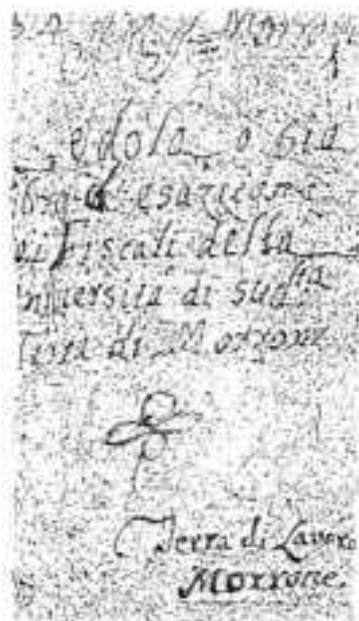 Morrone
edola o sia
esazione
Fiscali della
niversità di sud.ta
Terra di Morrone
Terra di Lavoro
Morrone.